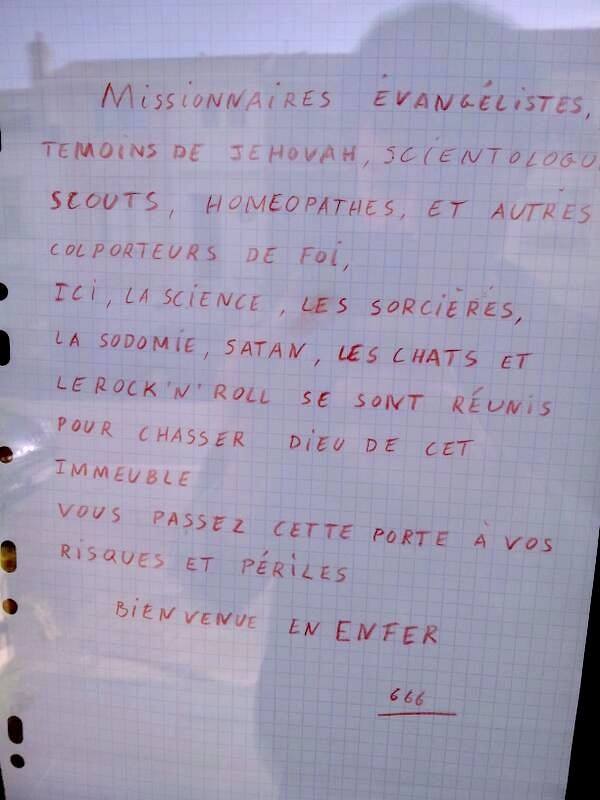 MISSIONNAIRES ÉVANGÉLISTES,
TEMOINS DE JEHOVAH, SCIENTOLOGU
SCOUTS, HOMÉOPATHES, ET AUTRES
COLPORTEURS DE FOI,
ICI, LA SCIENCE, LES SORCIÈRES,
LA SODOMIE, SATAN, LES CHATS ET
LE ROCK'N'ROLL SE SONT RÉUNIS
POUR CHASSER DIEU DE CET
IMMEUBLE
VOUS PASSEZ CETTE PORTE À VOS
RISQUES ET PÉRILES
BIENVENUE EN ENFER
666